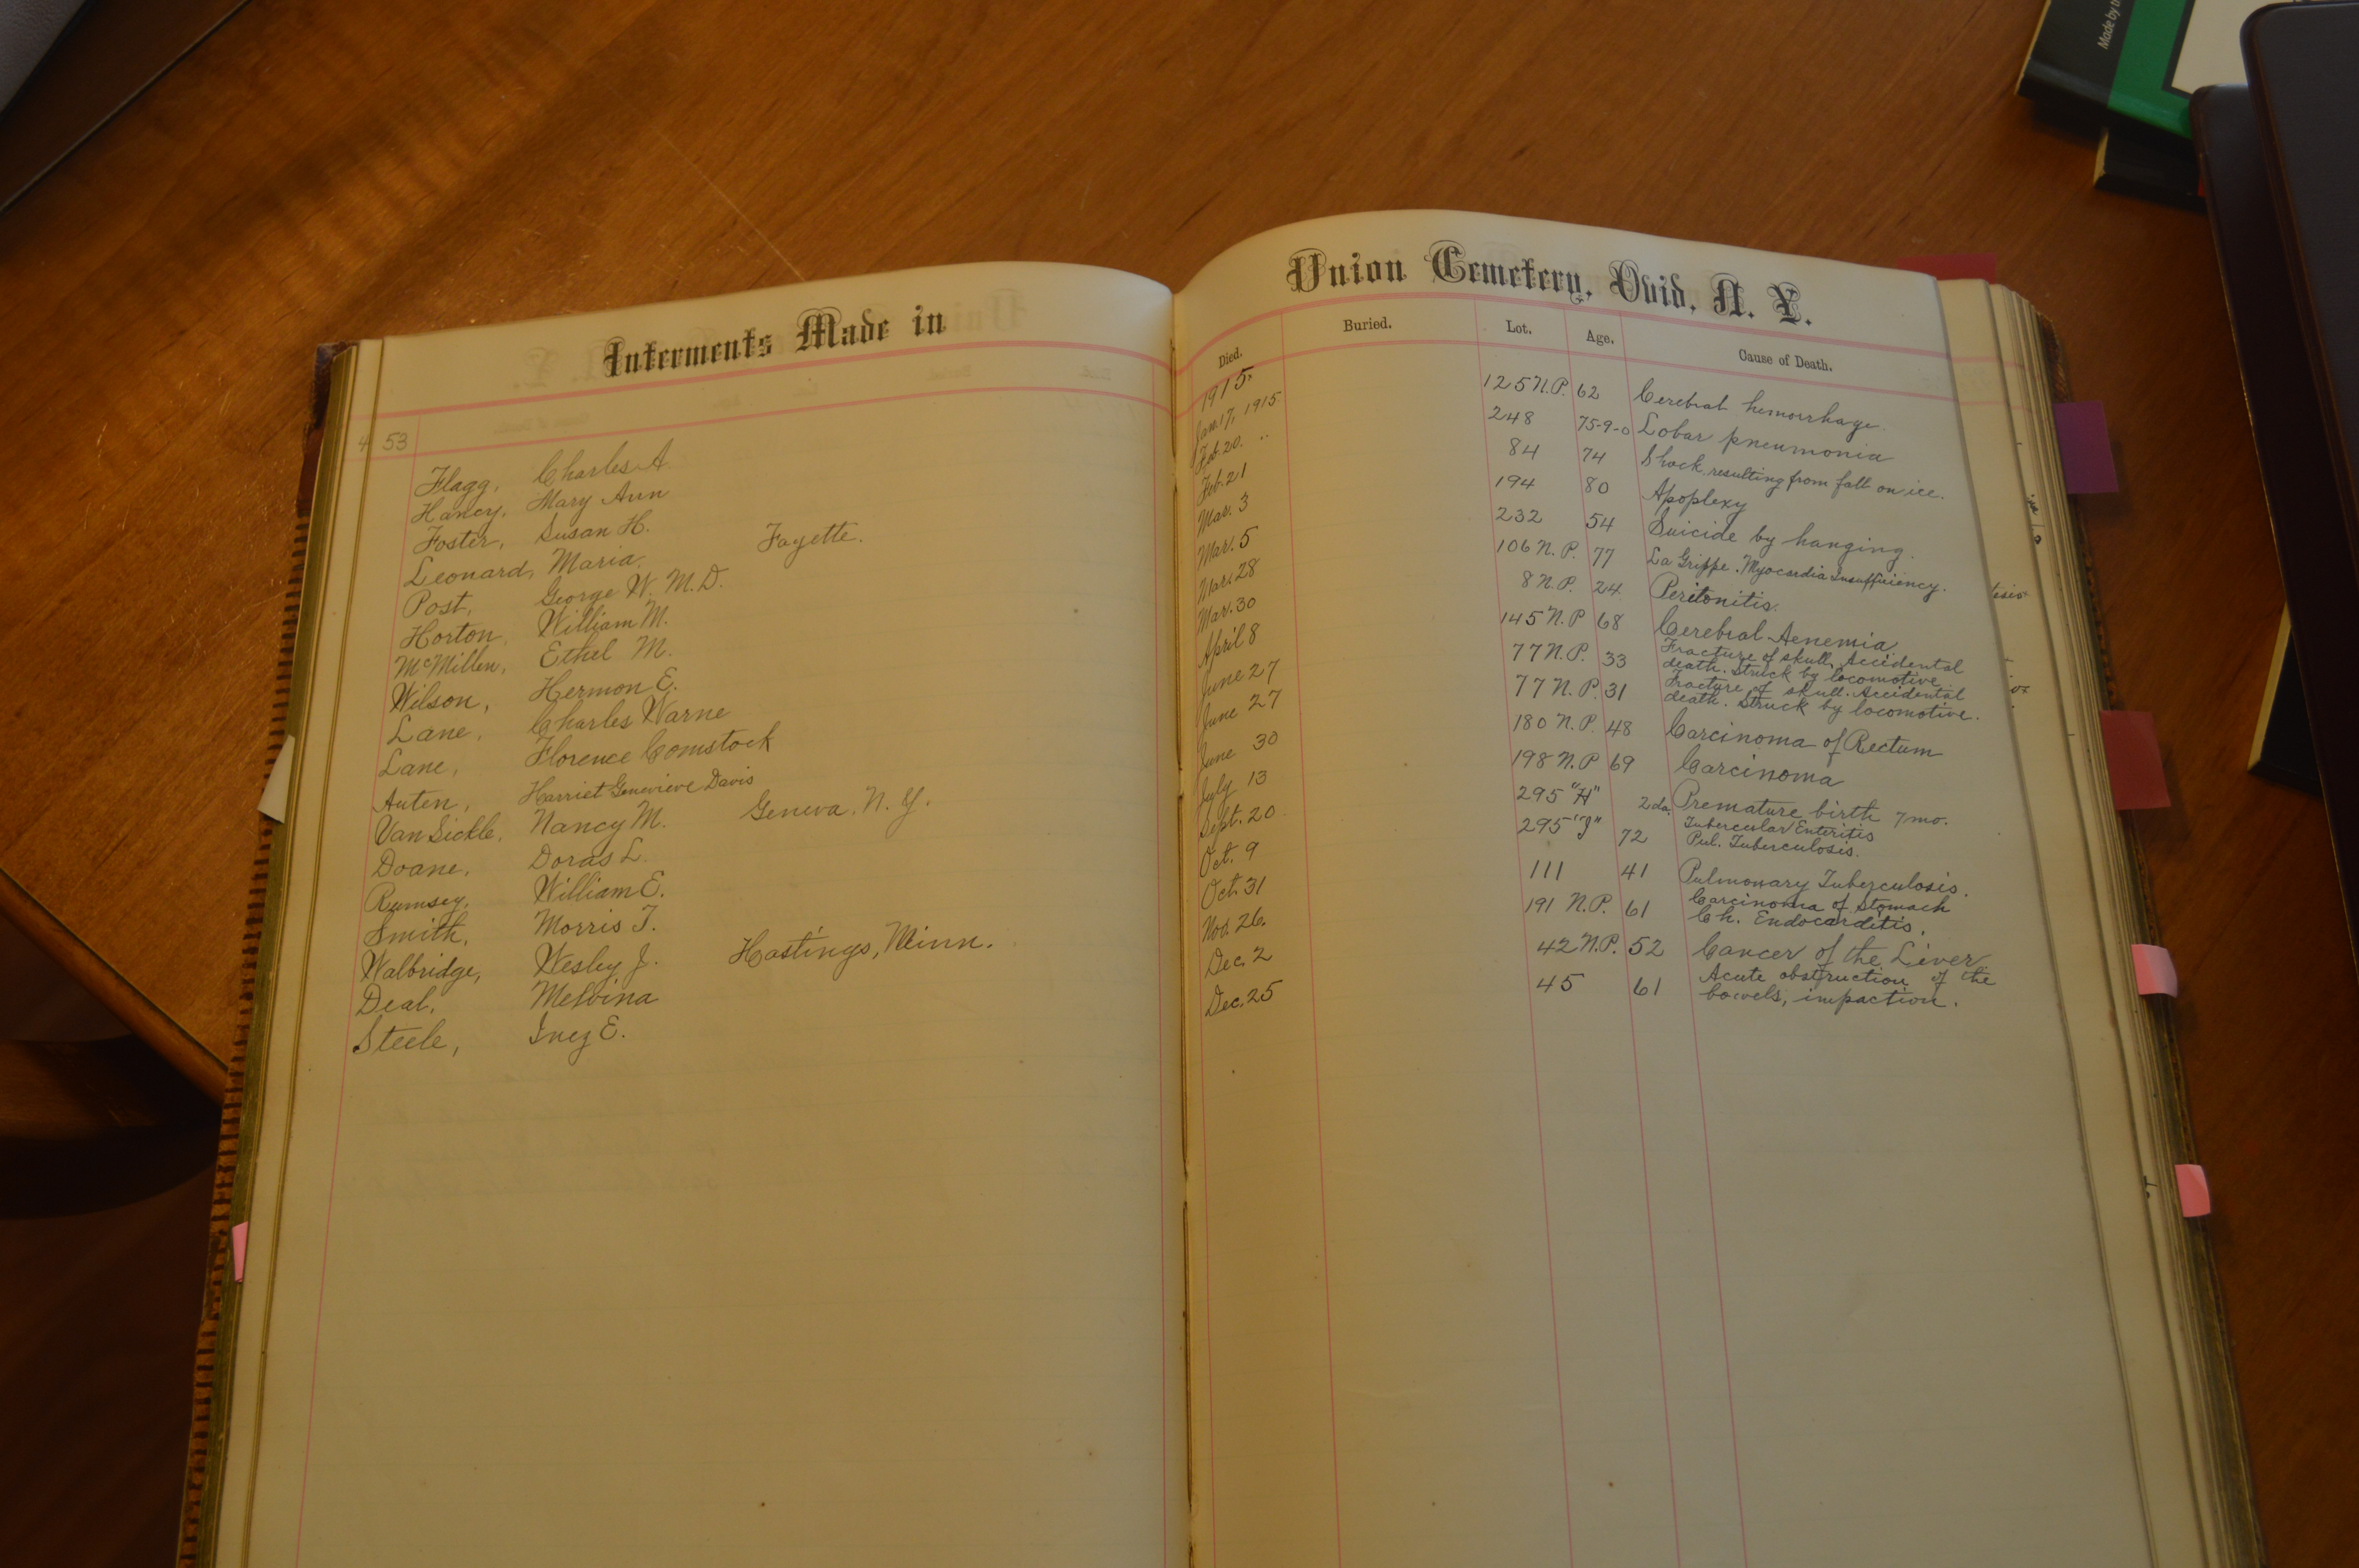 Interments Made in
4 53
Flagg, Charles A.
Haney, Mary Ann
Foster, Susan H.
Leonard, Maria. Fayette.
Post, George W. M.D.
Horton, William M.
McMillen, Ethel M.
Wilson, Hermon E.
Lane, Charles Warne
Lane, Florence Comstock
Auten, Harriet Genevieve Davis
Van Sickle, Nancy M. Geneva, N.Y.
Doane, Doras L.
Rumsey, William E.
Smith, Morris T.
Walbridge, Wesley J. Hastings, Minn.
Deal, Melvina
Steele, Inez E.
Union Cemetery, Ovid, N. Y.
Died. Buried. Lot. Age. Cause of Death.
1915.
Jan. 17, 1915 125 N.P. 62 Cerebral hemorrhage.
Feb. 20. " 248 75-9-0 Lobar pneumonia
Feb. 21 84 74 Shock resulting from fall on ice.
Mar. 3 194 80 Apoplexy
Mar. 5 232 54 Suicide by hanging.
Mar. 28 106 N.P. 77 La Grippe. Myocardia Insufficiency.
Mar. 30 8 N.P. 24 Peritonitis.
April 8 145 N.P 68 Cerebral Aenemia
June 27 77 N.P. 33 Fracture of skull. Accidental
death. Struck by locomotive
June 27 77 N.P. 31 Fracture of skull. Accidental
death. Struck by locomotive.
June 30 180 N.P. 48 Carcinoma of Rectum
July 13 198 N.P 69 Carcinoma
Sept. 20 295 "H" 2 da. Premature birth 7 mo.
Oct. 9 295 "J" 72 Tubercular Enteritis
Pul. Tuberculosis.
Oct. 31 111 41 Pulmonary Tuberculosis.
Nov. 26. 191 N.P. 61 Carcinoma of Stomach
Ch. Endocarditis.
Dec. 2 42 N.P. 52 Cancer of the Liver
Dec. 25 45 61 Acute obstruction of the
bowels, impaction.
Made by